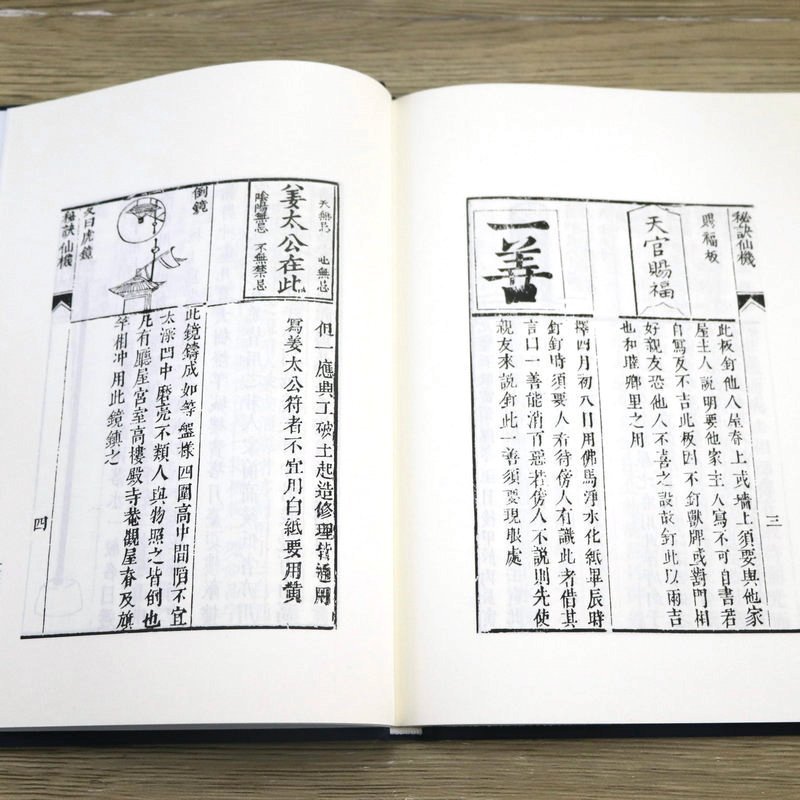 秘訣仙機
三
賜福板
天官賜福
此板釘他人屋脊上或墻上須要與他家
屋主人說明要他家主人寫不可自書若
自寫反不吉此板因不釘獸牌或對門相
好親友恐他人不喜之設故釘此以兩吉
也和睦鄉里之用
一善
擇四月初八日用佛馬淨水化紙畢辰時
釘釘時須要人看待傍人有識此者借其
言曰一善能消百惡若傍人不說則先使
親友來說釘此一善須要現眼處
天無忌
地無忌
姜太公在此
陰陽無忌
百無禁忌
但一應興工破土起造修理皆通用
寫姜太公符者不宜用白紙要用黃
倒鏡
此鏡鑄成如等盤樣四圍高中間陷不宜
太深凹中磨亮不類人與物照之皆倒也
凡有廳屋宮室高樓殿寺菴觀屋脊及旗
竿相冲用此鏡鎮之
又曰虎鏡
秘訣仙機
四